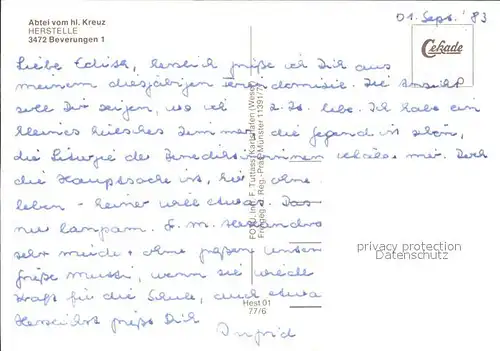 Abtei vom hl. Kreuz
HERSTELLE
3472 Beverungen 1
01. Sept. '83
Cekade
Liebe Edith, herzlich grüße ich Dich aus
meinem diesjährigen Feriendomizil. Die Ansicht
soll Dir zeigen, wo ich z. Zt. lebe. Ich habe ein
kleines hübsches Zimmer, die Gegend ist schön,
die Liturgie der Benediktinerinnen mir. Doch
die Hauptsache ist, hier ohne
leben - keiner will etwas. Das
nur langsam.
sehr müde, ohne
Grüße Mutti, wenn sie wieder
Kraft für die Schule, auch etwas
Herzlichst grüßt Dich
Ingrid
FOTO: Inh. F. Tuttass, Karlshafen (Weser)
Freigeg. d. Reg.-Präs. Münster 11391/77
Hest 01
77/6
privacy protection
Datenschutz